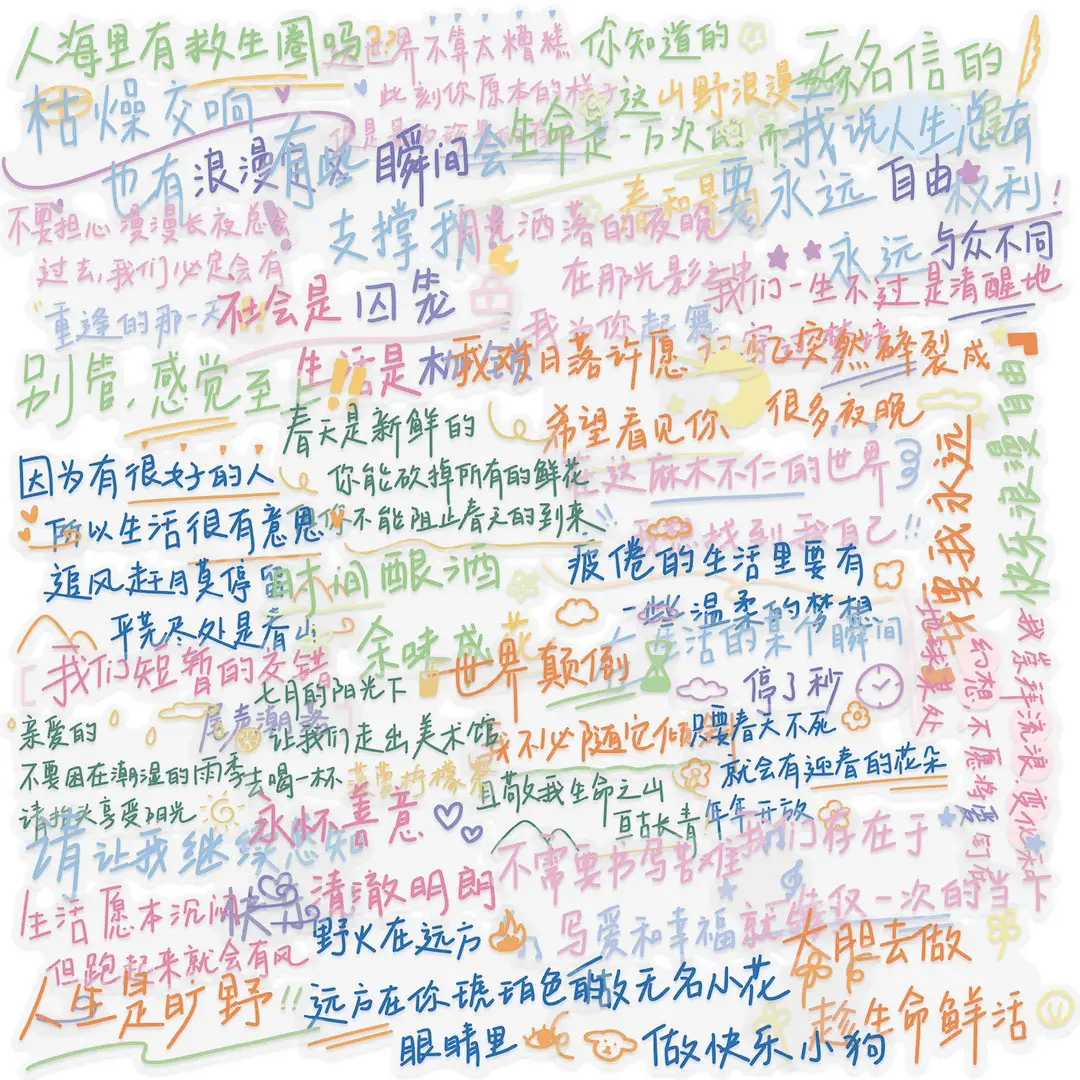 人海里有救生圈吗
世界不算太糟糕
你知道的
无名信的
枯燥交响
此刻你原本的样子
这山野浪漫
也有浪漫
有些瞬间会
生命是一万次的
而我说人生总有
支撑我
春和景
要永远自由
权利!
不要担心漫漫长夜总会
过去,我们必定会有
重逢的那一天!!
月光洒落的夜晚
永远与众不同
在那光影交
我们一生不过是清醒地
不会是囚笼
我为你起舞
别管,感觉至上
生活是
我对日落许愿
突然碎裂成
希望看见你
很多夜晚
春天是新鲜的
你能砍掉所有的鲜花
你不能阻止春天的到来
在这麻木不仁的世界
找到我自己!!
因为有很好的人
所以生活很有意思
追风赶月莫停留
平芜尽处是春山
时间酿酒
余味成花
疲倦的生活里要有
一些温柔的梦想
生活的某个瞬间
停了秒
许我永远
快乐浪漫自由
我们短暂的交错
世界颠倒
我不必随它倾
七月的阳光下
让我们走出美术馆
去喝一杯
柠檬
尾声潮
亲爱的
不要困在潮湿的雨季
请抬头享受阳光
只要春天不死
就会有迎春的花朵
年年开放
且敬我生命之山
亘古长青
我崇拜流浪 变化和
幻想 不愿将爱钉在
地球某处
永怀善意
清澈明朗
请让我继续
不需要书写苦难
写爱和幸福就
我们存在于
仅仅一次的当下
生活愿本沉闷
但跑起来就会有风
快乐
人生是旷野!!
野火在远方
远方在你琥珀色的
眼睛里
做无名小花
做快乐小狗
大胆去做
趁生命鲜活